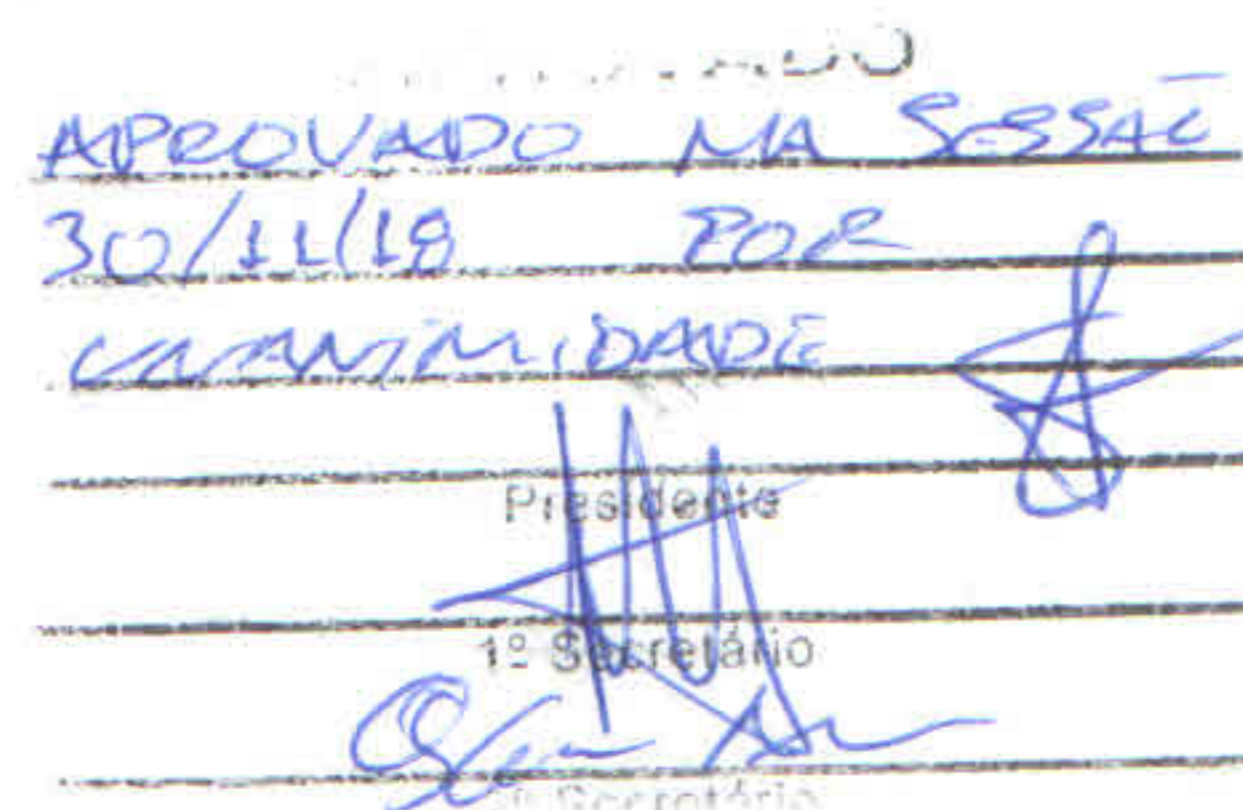 APROVADO NA SESSÃO
30/11/18 POR
UNANIMIDADE
Presidente
1º Secretário
Secretário